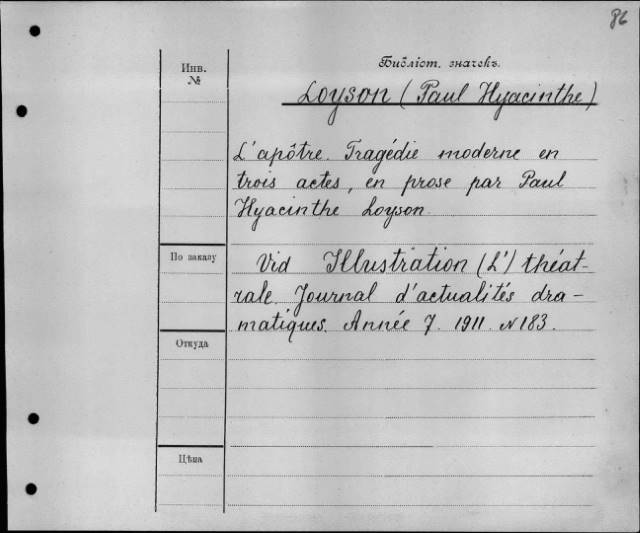 86
Библіот. значекъ.
Инв.
№
Loyson (Paul Hyacinthe)
L'apôtre. Tragédie moderne en
trois actes, en prose par Paul
Hyacinthe Loyson.
По заказу
Vid Illustration (L') théat-
rale. Journal d'actualités dra-
matiques. Année 7. 1911. N183.
Откуда
Цѣна